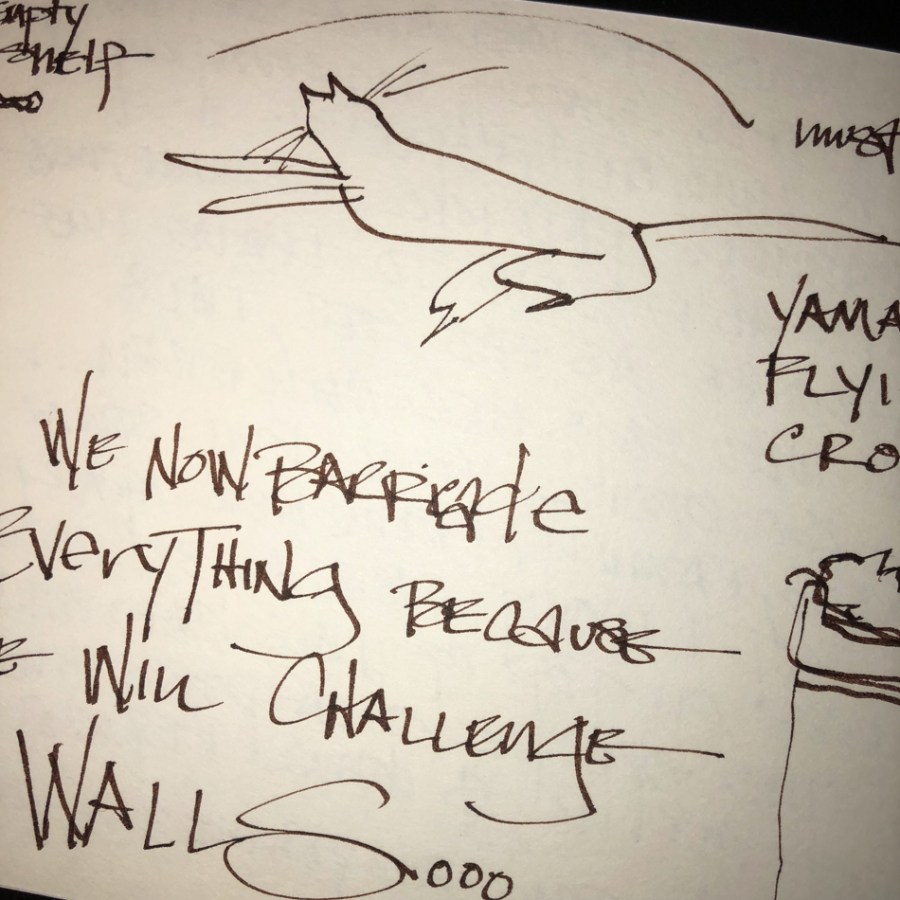 empty
shelf
must
YAMA
FLYI
CRO
WE NOW BARRicade
EveryTHING BECAUSE
E WiLL CHALLENGE
WALLS...